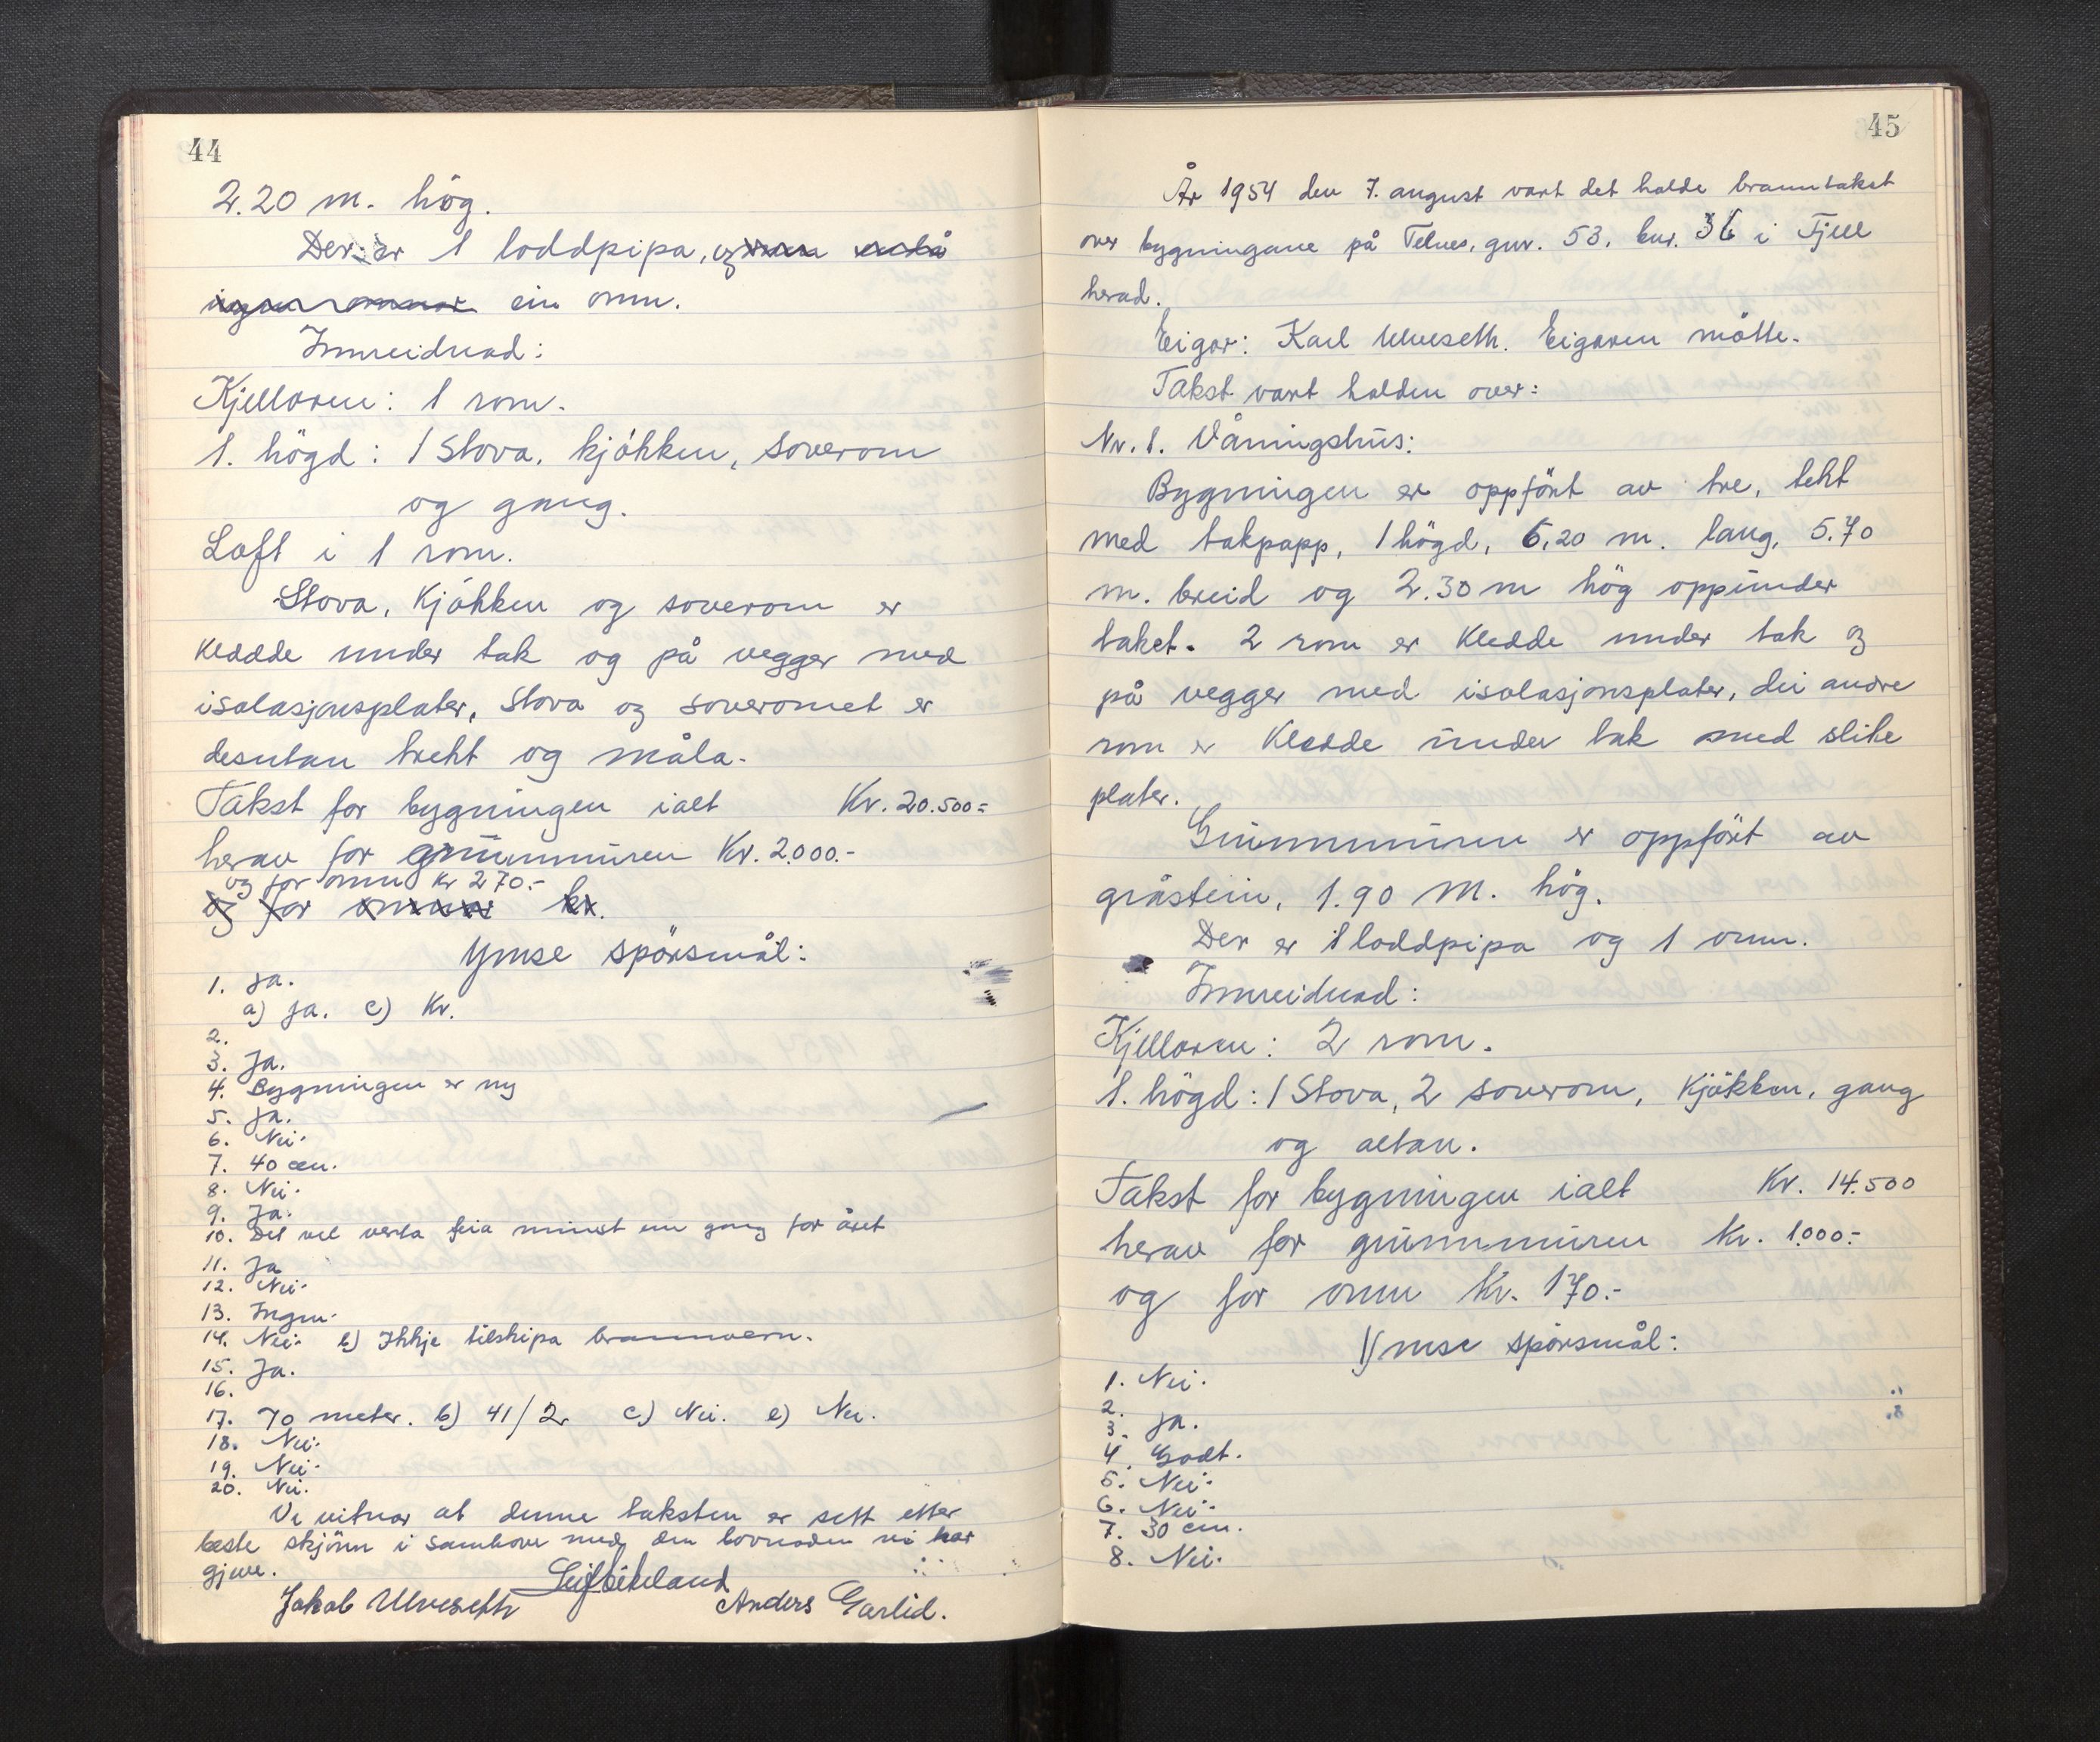 44
2.20 m. hög.
Der er 1 loddpipa,
ein omn.
Innreidnad:
Kjellaren: 1 rom.
1. högd: 1 Stova, kjökken, soverom
og gang.
Loft i 1 rom.
Stova, kjökken og soverom er
kledde under tak og på vegger med
isolasjonsplater, Stova og soveromet er
desutan trekt og måla.
Takst for bygningen ialt Kr. 20.500=
herav for grunnmuren Kr. 2.000.-
og for omn Kr 270.-
og for omnar kr.
Ymse spörsmål:
1. Ja.
a) Ja. c) Kr.
2.
3. Ja.
4. Bygningen er ny
5. Ja.
6. Nei.
7. 40 cm.
8. Nei.
9. Ja.
10. Det vil verta feia minst ein gang for året
11. Ja
12. Nei.
13. Ingen.
14. Nei. b) Ikkje tilskipa brannvern.
15. Ja.
16.
17. 70 meter. b) 41/2 c) Nei. e) Nei.
18. Nei.
19. Nei.
20. Nei.
Vi vitnar at denne taksten er sett etter
beste skjönn i samhove med den lovnaden vi har
gjeve.
Leif Eikeland
Jakob Ulveseth Anders Garlid.
45
År 1954 den 7. august vart det halde branntakst
over bygningane på Telnes, gnr. 53, bnr. 36 i Fjell
herad.
Eigar: Karl Ulveseth. Eigaren mötte.
Takst vart halden over:
Nr. 1. Våningshus:
Bygningen er oppfört av tre, tekt
med takpapp, 1 högd, 6.20 m. lang, 5.70
m. breid og 2.30 m hög oppunder
taket. 2 rom er kledde under tak og
på vegger med isolasjonsplater, dei andre
rom er kledde under tak med slike
plater.
Grunnmuren er oppfört av
gråstein, 1.90 m. hög.
Der er 1 loddpipa og 1 omn.
Innreidnad:
Kjellaren: 2 rom.
1. högd: 1 Stova, 2 soverom, kjökken, gang
og altan.
Takst for bygningen ialt Kr. 14.500
herav for grunnmuren Kr. 1.000.-
og for omn Kr. 170.-
Ymse spörsmål:
1. Nei.
2.
3. Ja.
4. Godt.
5. Nei.
6. Nei.
7. 30 cm.
8. Nei.